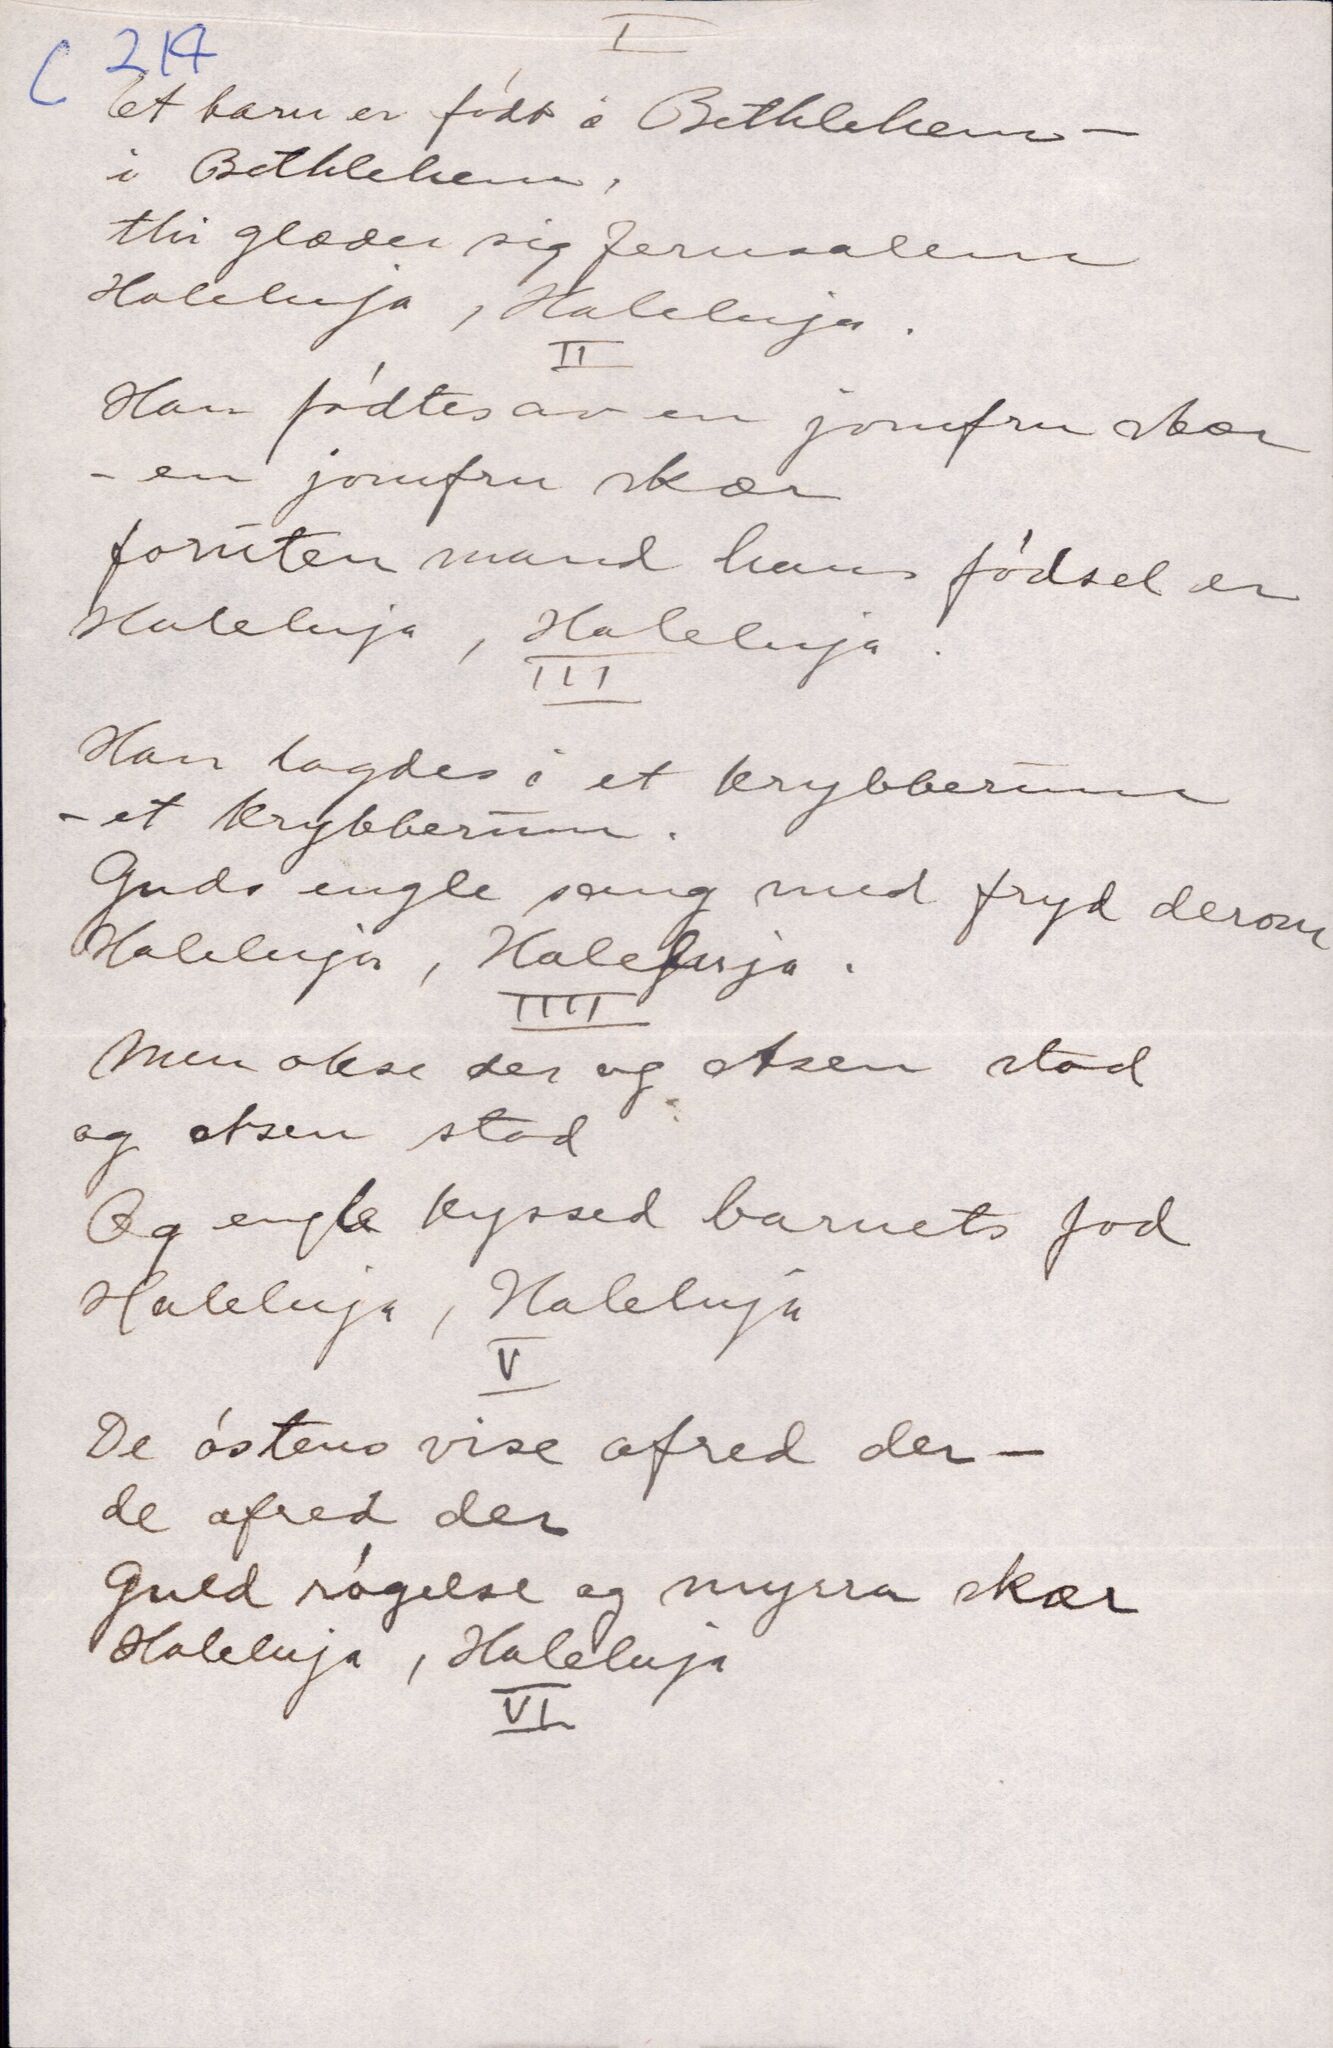 I
C 214
Et barn er fódt i Bethlehem –
i Bethlehem,
thi glæder sig Jerusalem
Haleluja, Haleluja.
II
Han fódtes av en jomfru skær
– en jomfru skær
forūten mand hans fódsel er
Haleluja, Haleluja.
III
Han lagdes i et krybberūm
– et krybberūm.
Guds engle sang med fryd derom
Haleluja, Haleluja.
IIII
Men okse der og Asen stod
og Asen stod
Og engle kyssed barnets fod
Haleluja, Haleluja
V
De óstens vise ofred der –
de ofred der
Guld rógelse og myrra skær
Haleluja, Haleluja
VI